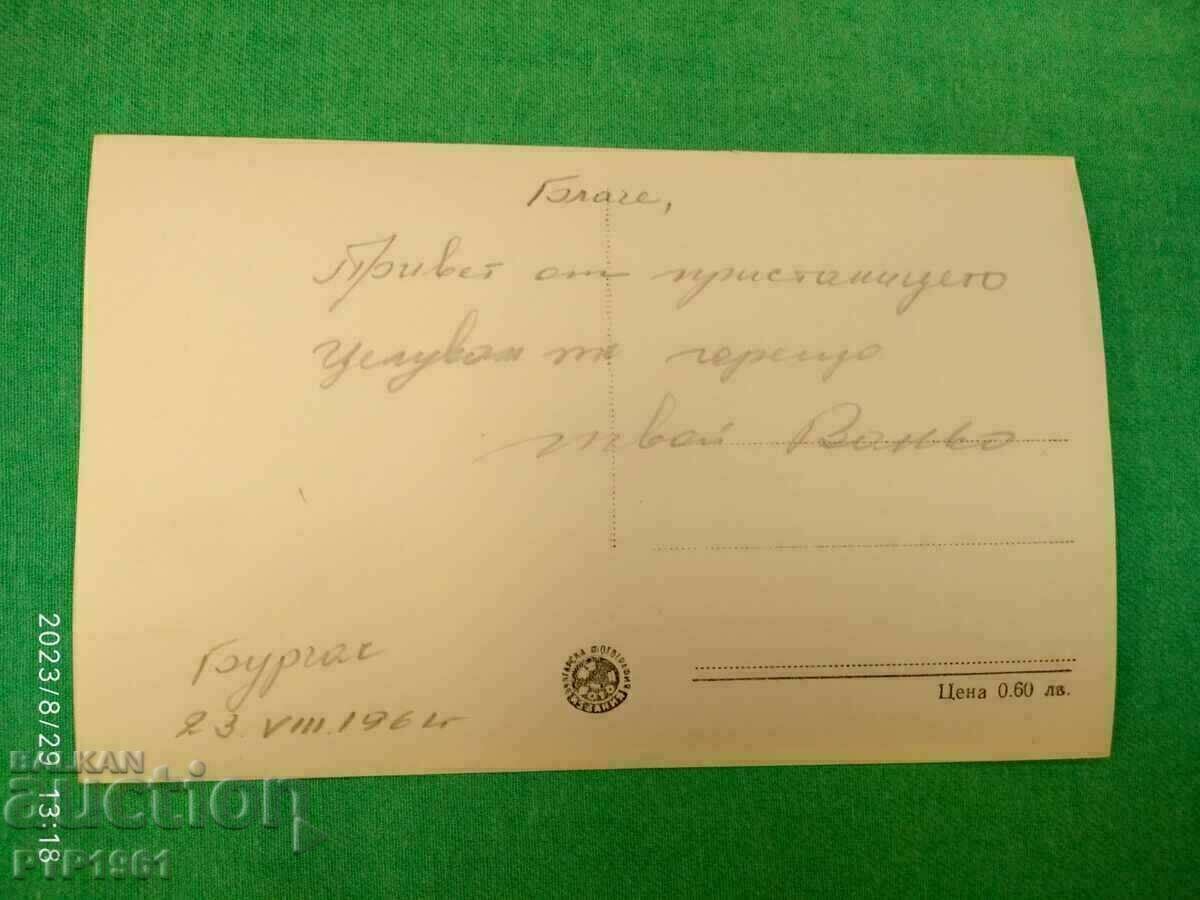 Благе,
Привет от пристанището
Целувам те горещо
твой Ваньо
Бургас
23.VIII.196
БЪЛГАРСКА ФОТОГРАФИЯ
Цена 0.60 лв.
2023/8/29 13:18
BALKAN
auction
PYP1961